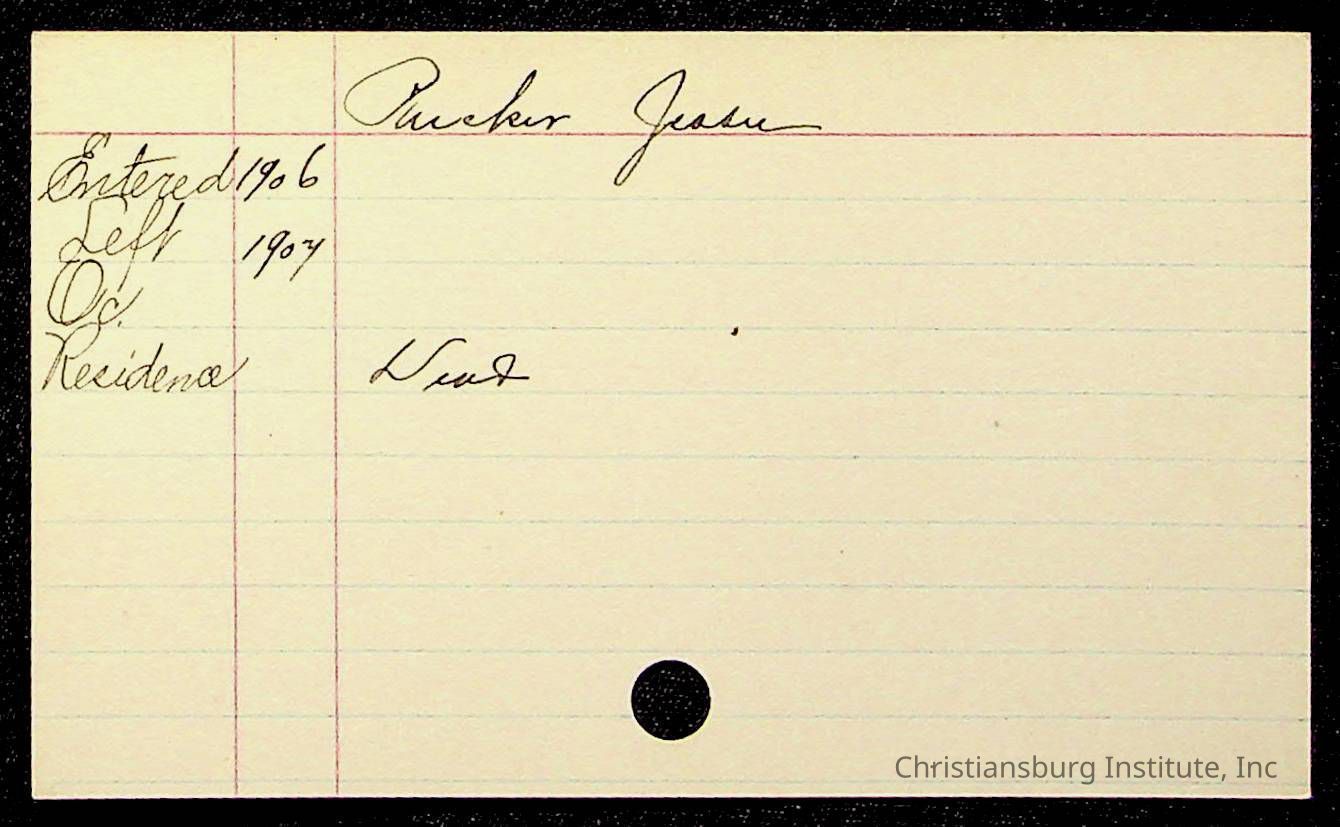 Jessie
Entered 1906
Left 1907
Oc.
Residence
Christiansburg Institute, Inc